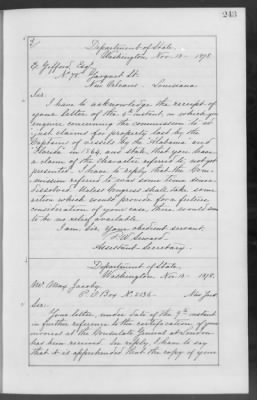 243
Department of State.
Washington, Nov. 13 - 1878.
E. Gifford, Esq.
No 78 St.
New Orleans, Louisiana
Sir:
I have to acknowledge the receipt of
your letter of the 9th instant, in which you
enquire concerning the commission to ad-
just claims for property lost by the
Captains of vessels by the "Alabama" and
"Florida" in 1864, and state that you have
a claim of the character referred to, not yet
presented. I have to reply that the Com-
mission referred to was some time since
dissolved. Unless Congress shall take some
action which would provide for a further
consideration of your case, there would seem
to be no relief available.
I am, Sir, Your obedient servant,
F. W. Seward
Assistant Secretary.
Department of State,
Washington, Nov. 13 - 1878.
Mr. Max Jacoby
P. O. Box No. New York
Sir:
Your letter, under date of the 9th instant
in further reference to the certification, of your
invoices at the Consulate General at London
has been received. In reply, I have to say
that it is apprehended that the copy of your